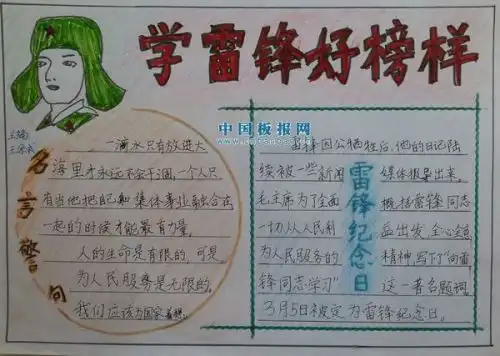 学雷锋好榜样
中国板报网
名言警句
一滴水只有放进大
海里才永远不会干涸，一个人只
有当他把自己和集体事业融合在
一起的时候才能最有力量。
人的生命是有限的，可是
为人民服务是无限的。
我们应该为国家着想。
雷锋纪念日
雷锋因公牺牲后，他的日记陆
续被一些新闻媒体报导出来。
毛主席为了全面概括雷锋同志
一切从人民利益出发，全心全意
为人民服务的精神，写下了“向雷
锋同志学习”这一著名题词。
3月5日被定为雷锋纪念日。